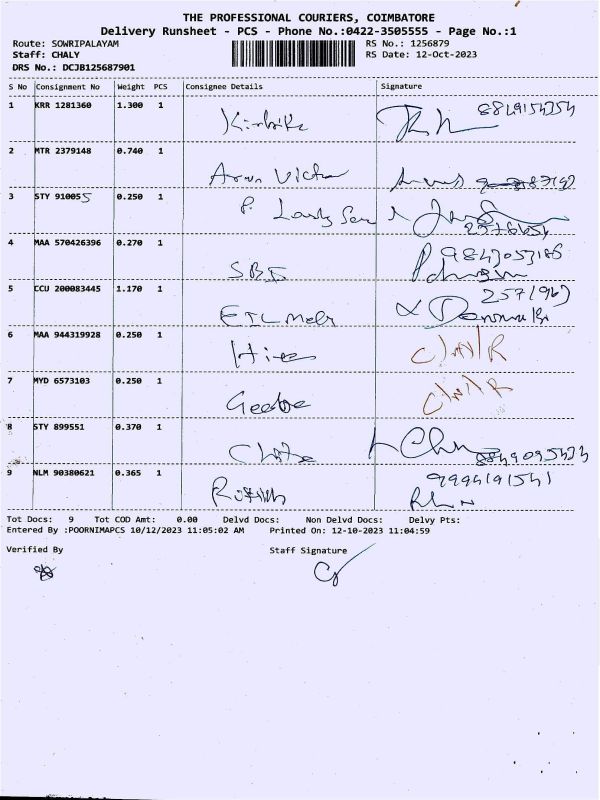 THE PROFESSIONAL COURIERS, COIMBATORE
Delivery Runsheet - PCS - Phone No.:0422-3505555 - Page No.:1
Route: SOWRIPALAYAM RS No.: 1256879
Staff: CHALY RS Date: 12-Oct-2023
DRS No.: DCJB125687901
S No Consignment No Weight PCS Consignee Details Signature
1 KRR 1281360 1.300 1
2 MTR 2379148 0.740 1
Arun Victor
3 STY 910055 0.250 1
4 MAA 570426396 0.270 1 9843053186
SBI
5 CCU 200083445 1.170 1
6 MAA 944319928 0.250 1
7 MYD 6573103 0.250 1
Geetha
8 STY 899551 0.370 1
9 NLM 90380621 0.365 1 9994191541
Tot Docs: 9 Tot COD Amt: 0.00 Delvd Docs: Non Delvd Docs: Delvy Pts:
Entered By :POORNIMAPCS 10/12/2023 11:05:02 AM Printed On: 12-10-2023 11:04:59
Verified By Staff Signature